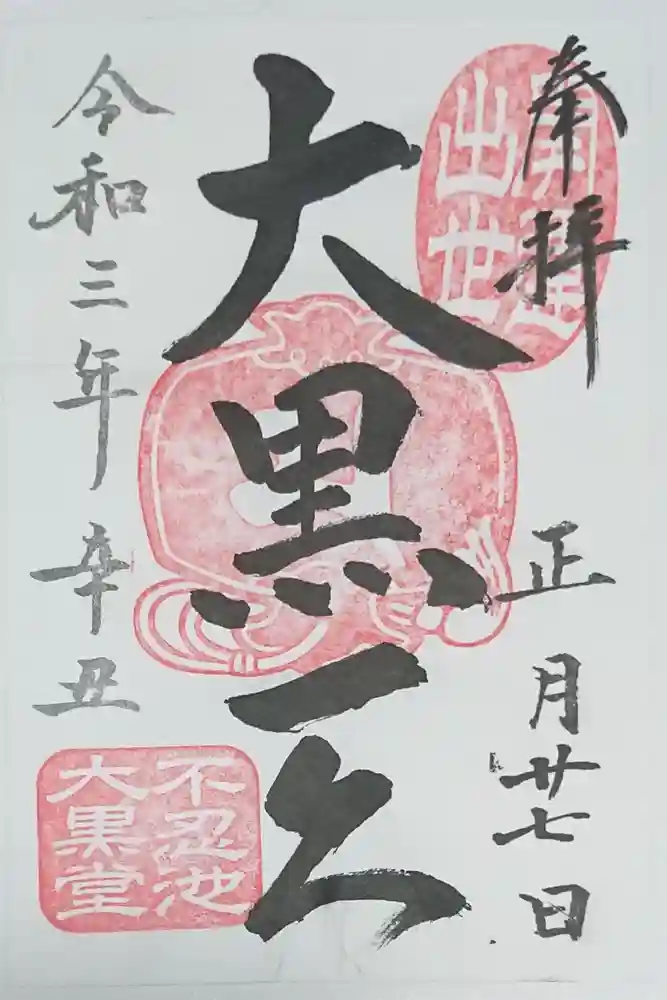 奉拝
開運
出世
正月廿七日
大黒天
令和三年辛丑
不忍池
大黒堂